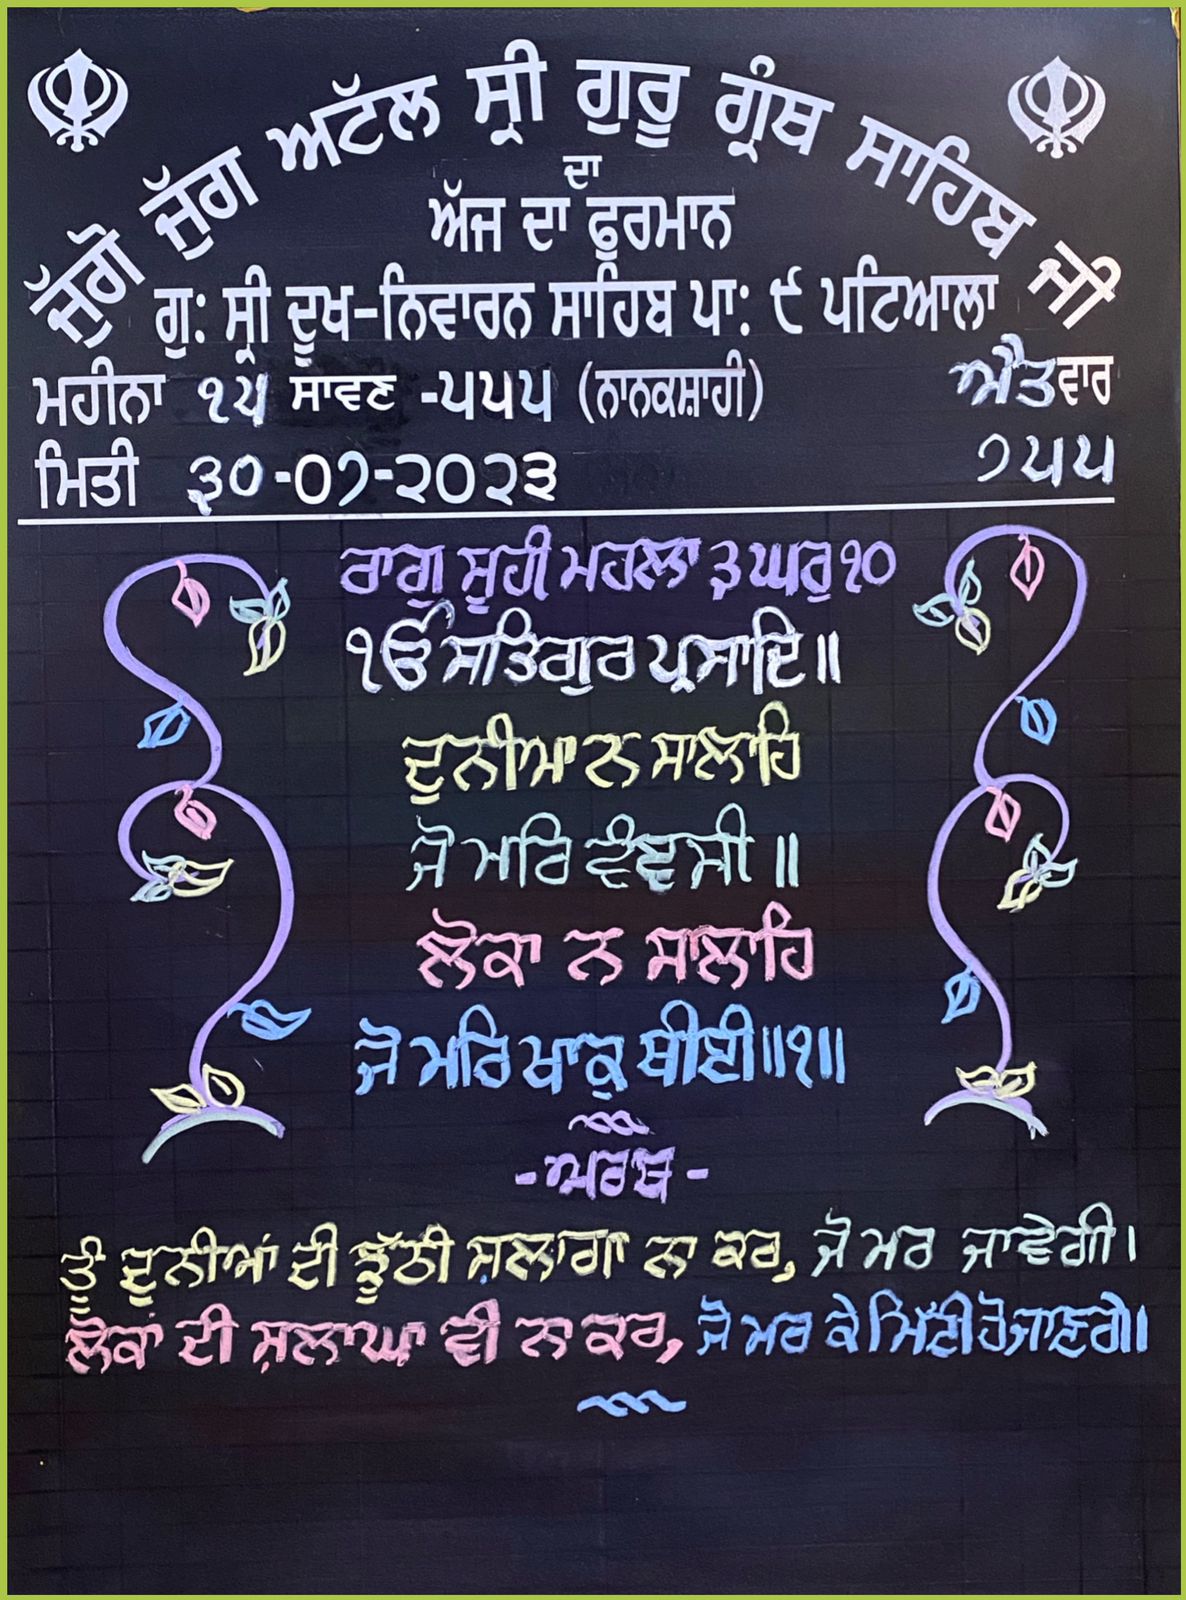 ਜੁੱਗੋ ਜੁੱਗ ਅਟੱਲ ਸ੍ਰੀ ਗੁਰੂ ਗ੍ਰੰਥ ਸਾਹਿਬ ਜੀ
ਦਾ
ਅੱਜ ਦਾ ਫੁਰਮਾਨ
ਗੁ: ਸ੍ਰੀ ਦੂਖ-ਨਿਵਾਰਨ ਸਾਹਿਬ ਪਾ: ੯ ਪਟਿਆਲਾ
ਮਹੀਨਾ ੧੫ ਸਾਵਣ -੫੫੫ (ਨਾਨਕਸ਼ਾਹੀ) ਐਤਵਾਰ
ਮਿਤੀ ੩੦-੦੭-੨੦੨੩ ੭੫੫
ਰਾਗੁ ਸੂਹੀ ਮਹਲਾ ੩ ਘਰੁ ੧੦
ੴ ਸਤਿਗੁਰ ਪ੍ਰਸਾਦਿ॥
ਦੁਨੀਆ ਨ ਸਾਲਾਹਿ
ਜੋ ਮਰਿ ਵੰਞਸੀ॥
ਲੋਕਾ ਨ ਸਾਲਾਹਿ
ਜੋ ਮਰਿ ਖਾਕੁ ਥੀਈ॥੧॥
-ਅਰਥ-
ਤੂੰ ਦੁਨੀਆਂ ਦੀ ਝੂੱਠੀ ਸ਼ਲਾਗਾ ਨਾ ਕਰ, ਜੋ ਮਰ ਜਾਵੇਗੀ।
ਲੋਕਾਂ ਦੀ ਸ਼ਲਾਘਾ ਵੀ ਨਾ ਕਰ, ਜੋ ਮਰ ਕੇ ਮਿੱਟੀ ਹੋ ਜਾਣਗੇ॥